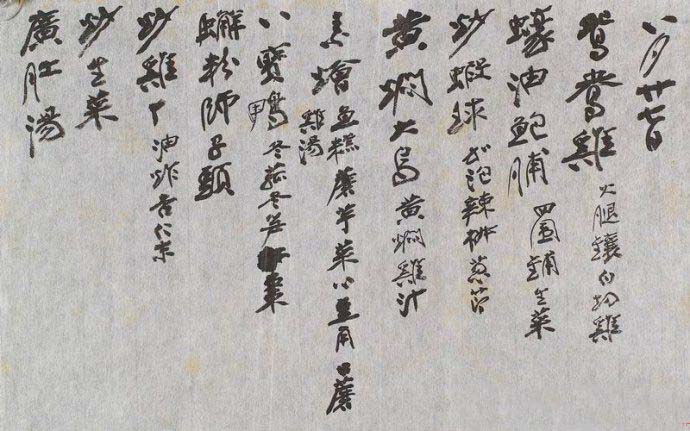 八月廿七日
鴛鴦雞 火腿鑲白切雞
蠔油鮑脯 四圍鋪生菜
炒蝦球 泡辣椒蔥
黃燜大鳥 黃燜雞汁
素燴 魚糕 蘑芋菜心 雞湯
八寶鴨 冬菰冬笋 栗
蟹粉師子頭
炒雞丁 油炸杏仁末
炒生菜
廣肚湯